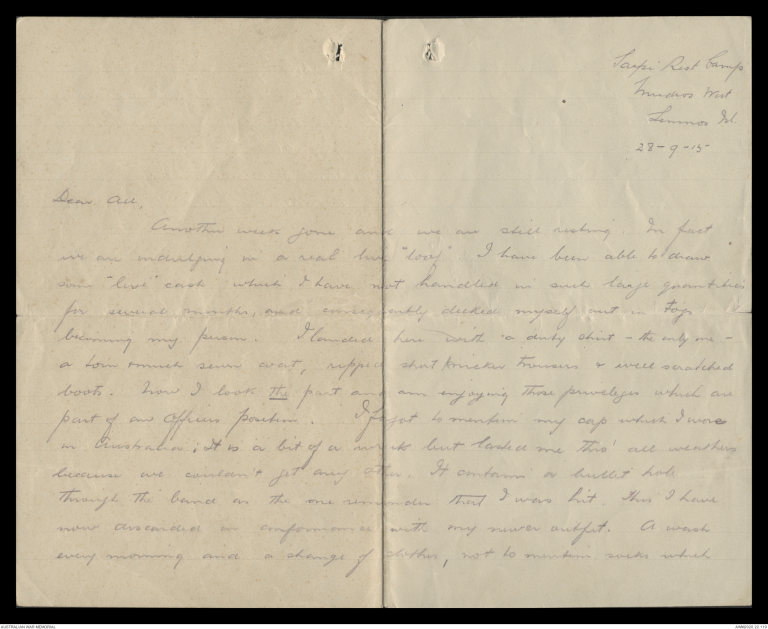 Sarpi Rest Camp
Mudros West
Lemnos Isl.
28-9-15
Dear All,
Another week gone and we are still resting. In fact
we are indulging in a real live "loaf". I have been able to draw
some "live" cash which I have not handled in such large quantities
for several months, and consequently decked myself out in Togs
becoming my person. I landed here with a dirty shirt - the only one -
a torn & much sewn coat, ripped short knicker trousers & well scratched
boots. Now I look the part and am enjoying those priveleges which are
part of an Officers position. I forgot to mention my cap which I wore
in Australia; It is a bit of a wreck but lasted me thro' all weathers
because we couldn't get any other. It contains a bullet hole
through the band as the one reminder that I was hit. This I have
now discarded in conformance with my newer outfit. A wash
every morning and a change of clothes, not to mention socks which
AUSTRALIAN WAR MEMORIAL